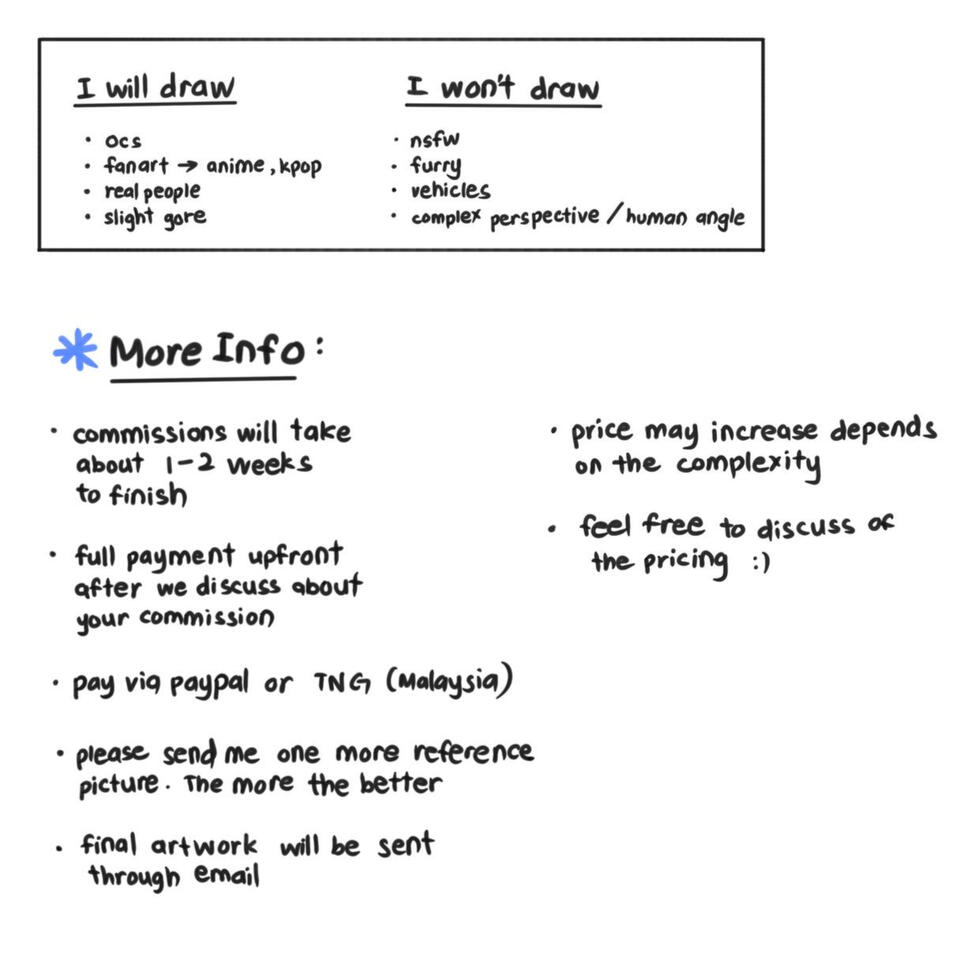 I will draw
• ocs
• fanart → anime, kpop
• real people
• slight gore
I won't draw
• nsfw
• furry
• vehicles
• complex perspective / human angle
More Info:
• commissions will take
about 1-2 weeks
to finish
• full payment upfront
after we discuss about
your commission
• pay via paypal or TNG (Malaysia)
• please send me one more reference
picture. The more the better
• final artwork will be sent
through email
• price may increase depends
on the complexity
• feel free to discuss of
the pricing :)